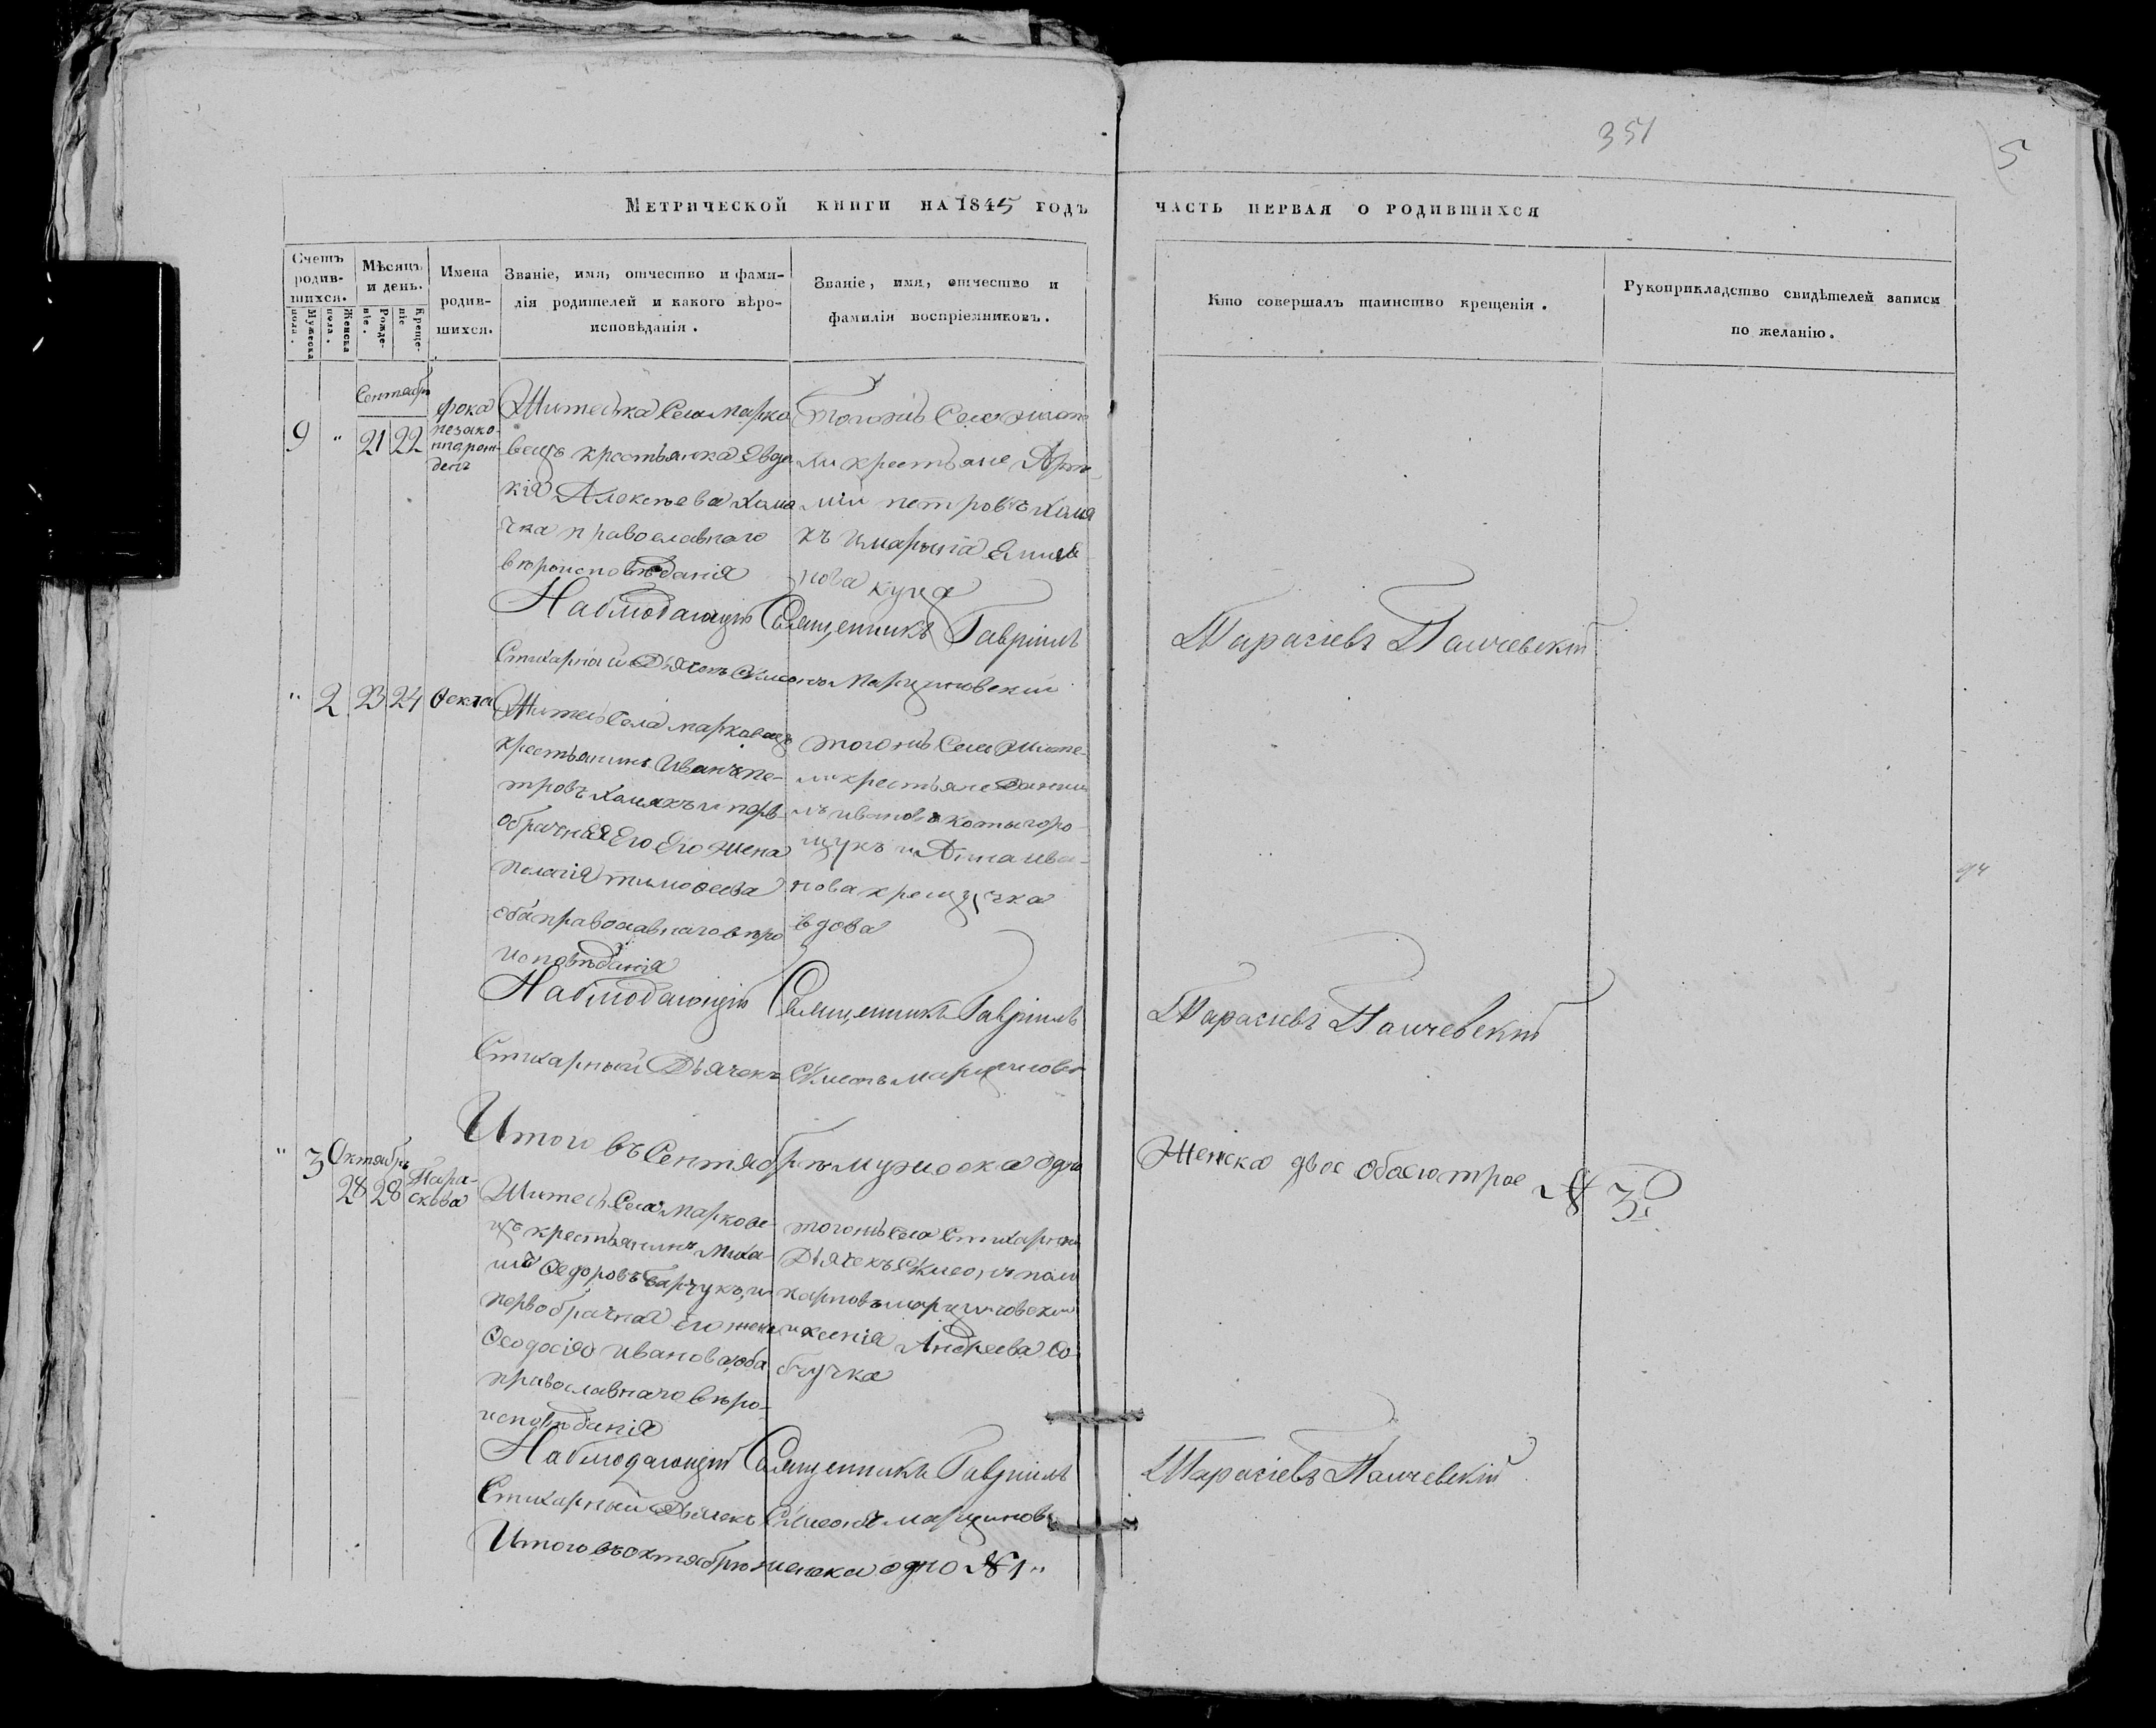 351
5
Метрической книги на 1845 годъ
часть первая о родившихся
Счетъ родив-
шихся.
Мужеска пола.
Женска пола.
Мѣсяцъ
и день.
Рожде-
ніе.
Креще-
ніе
Имена
родив-
шихся.
Званіе, имя, отчество и фами-
лія родителей и какого вѣро-
исповѣданія.
Званіе, имя, отчество и
фамилія воспріемниковъ.
Кто совершалъ таинство крещенія.
Рукоприкладство свидѣтелей записи
по желанію.
Сентябрь
9 " 21 22
фока
незако-
нно рож-
денъ
Жителька Села марко
вецъ крестьянка Евдо
кія Алексѣева Хома
чка православнаго
вѣроисповѣданія
Тогожъ Села жите
ли крестьяне Арте
мій петровъ Хомя
къ и марина
нова куца
Наблюдающій Священникъ Гавріилъ
Тарасіевъ Паичевскій
Стихарный Дьячекъ Симеонъ Марциновскій
" 2 23 24 Ѳекла
Житель Села марковецъ
крестьянинъ Иванъ пе-
тровъ Хомякъ и перво
обрачная Его Его жена
пелагія тимоѳеева
оба православнаго вѣро
исповѣданія
тогожъ Села Жите-
ли крестьяне Дании
лъ ивановъ котыгоро
щукъ и Анна ива-
нова крещучка
вдова
Наблюдающій Священникъ Гавріилъ
Тарасіевъ Паичевскій
Стихарный Дьячекъ Симеонъ марцинов
Итого въ Сентябрѣ мужеска одно
Женска двое обоего трое № 3.
" 3
Октябрь
28 28
Пара-
скева
Житель Села Маркове-
цъ крестьянинъ Миха-
илъ Ѳедоровъ Барчукъ, и
первобрачная его жена
Ѳеодосія иванова, оба
православнаго вѣро-
исповѣданія
тогожъ села Стихарный
Дьячекъ Симеонъ поли
карповъ марциновскій
и ксенія Андреева Со
бчучка
Наблюдающій Священникъ Гавріилъ
Тарасіевъ Паичевскій
Стихарный Дьячекъ Симеонъ марцинов
Итого въ октябрѣ женска одно № 1 "